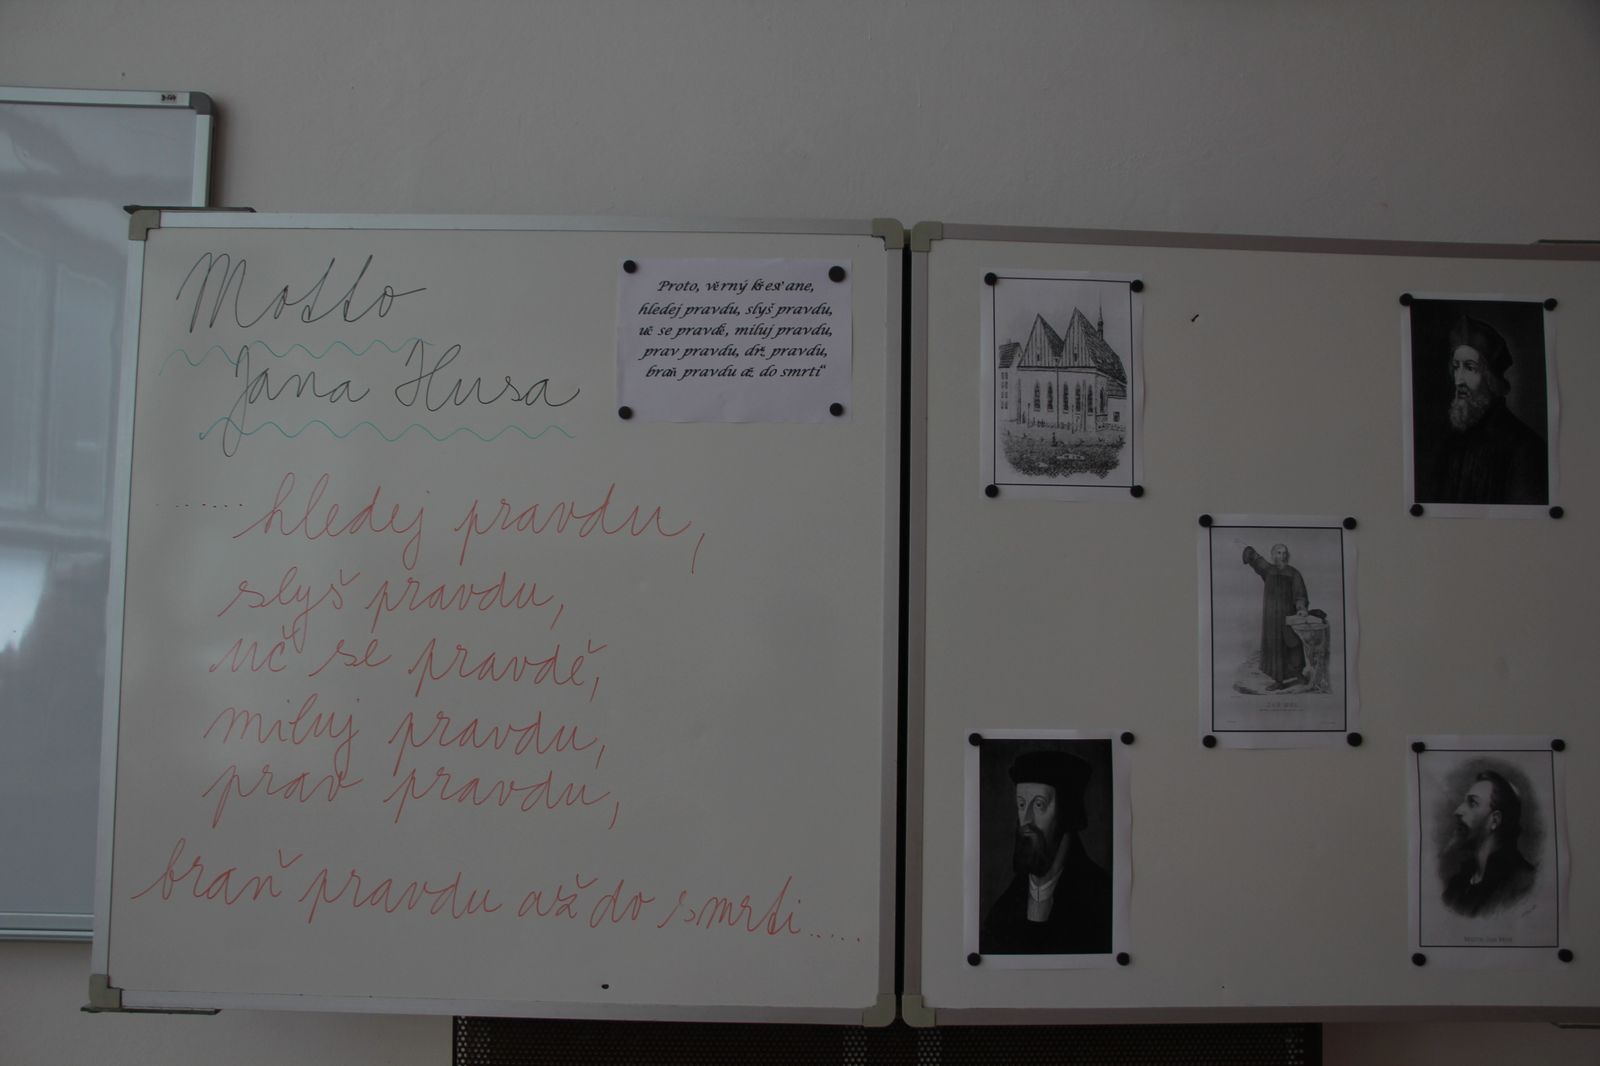 Motto
Jana Husa
....... hledej pravdu,
slyš pravdu,
uč se pravdě,
miluj pravdu,
prav pravdu,
braň pravdu až do smrti.....
Proto, věrný křesťane,
hledej pravdu, slyš pravdu,
uč se pravdě, miluj pravdu,
prav pravdu, drž pravdu,
braň pravdu až do smrti“
JAN HUS.